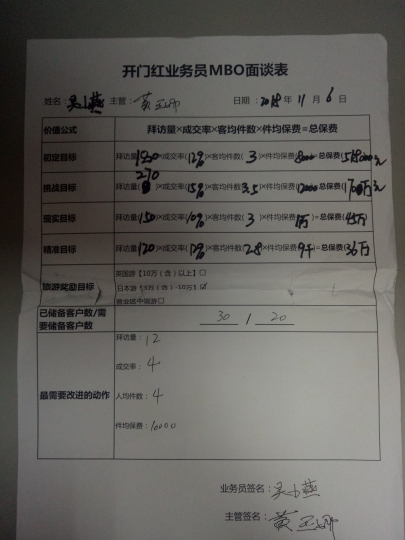 开门红业务员MBO面谈表
姓名：吴小燕 主管：黄玉娜 日期：2018年11月6日
价值公式 拜访量×成交率×客均件数×件均保费=总保费
初定目标 拜访量(180)×成交率(12%)×客均件数(3)×件均保费(8000)=总保费(518000元
挑战目标 拜访量(270)×成交率(15%)×客均件数(3.5)×件均保费(12000)=总保费(170万元
现实目标 拜访量(150)×成交率(10%)×客均件数(3)×件均保费(1万)=总保费(45万)
精准目标 拜访量(120)×成交率(12%)×客均件数(2.8)×件均保费(9千)=总保费(36万
旅游奖励目标
英国游【10万（含）以上】□
日本游【5万（含）-10万】☑
营业区中端游□
已储备客户数/需要储备客户数 30 / 20
最需要改进的动作
拜访量：12
成交率：4
人均件数：4
件均保费：10000
业务员签名：吴小燕
主管签名：黄玉娜